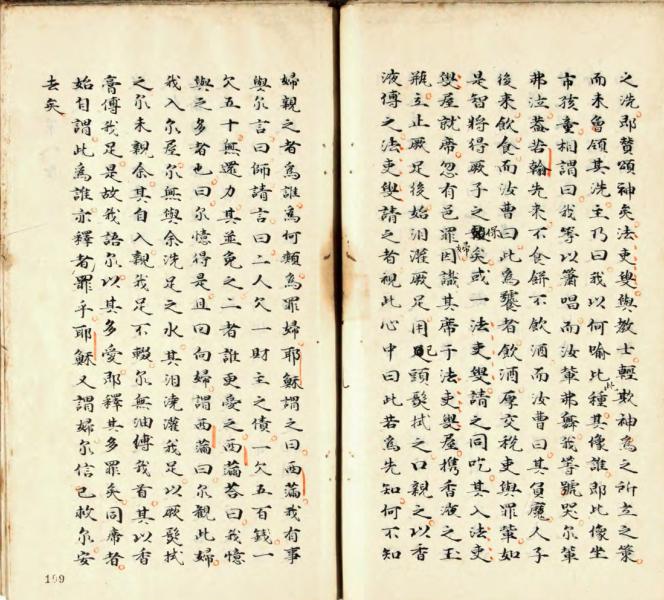 之洗即贊頌神矣法吏叟與教士輕欺神為之所立之策
而未曾領其洗主乃曰我以何喻此種其像誰即此像坐
市孩童相謂曰我等以簫唱而汝輩弗舞我等號哭尔輩
弗泣蓋若翰先來不食餅不飲酒而汝曹曰其負魔人子
後来飲食而汝曹曰此為饕者飲酒厚交稅吏與罪輩如
是智將得厥子之 矣或一法吏叟請之同吃其入法吏
叟屋就席忽有邑罪婦因識其席于法吏叟屋携香液之玉
瓶立止厥足後始泪濯厥足用己頭髮拭之口親之以香
液傅之法吏叟請之者視此心中曰此若為先知何不知
婦親之者為誰為何類為罪婦耶穌謂之曰西蒲我有事
與尔言曰師請言曰二人欠一財主之債一欠五百錢一
欠五十無還力其並免之二者誰更愛之西蒲荅曰我憶
與之多者也曰尔憶得是且曰向婦謂西蒲曰尔觀此婦
我入尔屋尔無與余洗足之水其泪澆濯我足以厥髮拭
之尔未親余其自入親我足不輟尔無油傅我首其以香
膏傅我足是故我語尔以其多愛即釋其多罪矣同席者
始自謂此為誰亦釋者罪乎耶穌又謂婦尔信已救尔安
去矣
199